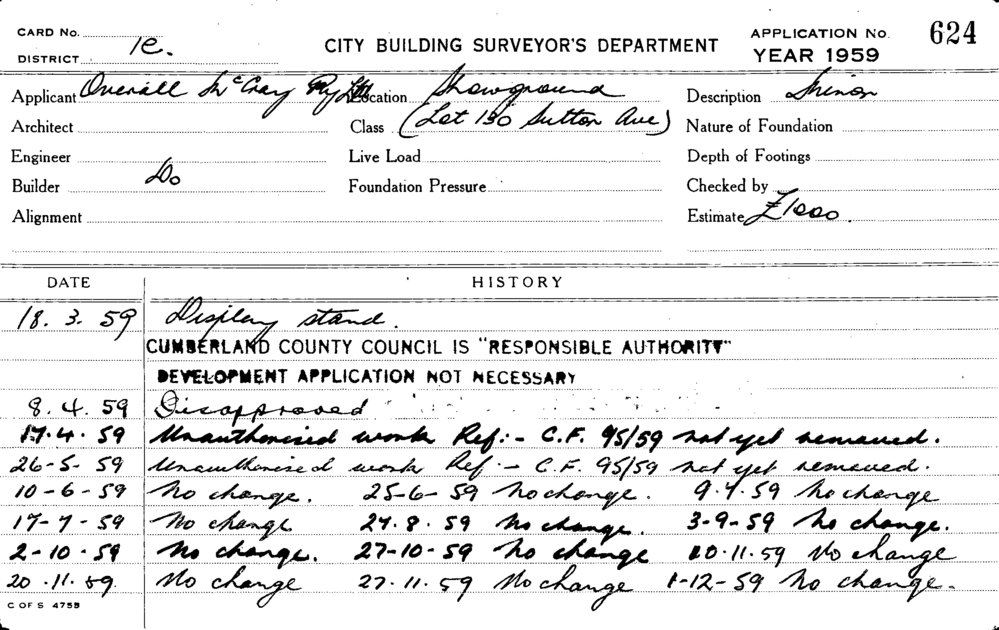 CARD No.
DISTRICT 1e.
CITY BUILDING SURVEYOR'S DEPARTMENT
APPLICATION No. 624
YEAR 1959
Applicant Overall McCray Pty Ltd Location Showground Description Minor
Architect Class (Lot 130 Sutton Ave) Nature of Foundation
Engineer Live Load Depth of Footings
Builder Do Foundation Pressure Checked by
Alignment Estimate £1000.
DATE HISTORY
18. 3. 59 Display stand.
CUMBERLAND COUNTY COUNCIL IS "RESPONSIBLE AUTHORITY"
DEVELOPMENT APPLICATION NOT NECESSARY
8. 4. 59 Disapproved
17.4.59 Unauthorised work Ref:- C.F. 95/59 not yet removed.
26-5-59 Unauthorised work Ref:- C.F. 95/59 not yet removed.
10-6-59 No change. 25-6-59 No change. 9.7.59 No change
17-7-59 No change 27.8.59 No change. 3-9-59 No change.
2-10-59 No change. 27-10-59 No change 10.11.59 No change
20.11.59. No change 27.11.59 No change 1-12-59 No change.
C OF S 4755